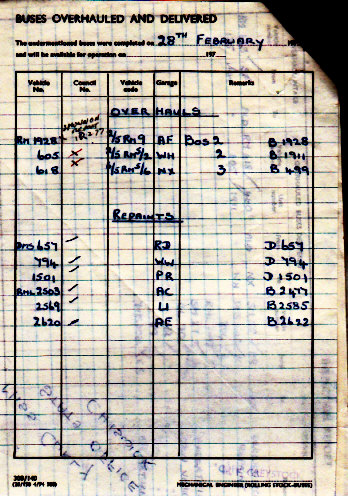 BUSES OVERHAULED AND DELIVERED
The undermentioned buses were completed on 28TH FEBRUARY
and will be available for operation on 197
Vehicle No. Council No. Vehicle code Garage Remarks
OVERHAULS
RM 1928 2/5 RM 9 AF BOS 2 B 1928
605 x 2/5 RM 5/2 WH 2 B 1911
618 x 2/5 RM 5/6 NX 3 B 499
REPAINTS
DMS 657 RD D 657
794 WW D 794
1501 PR D 1501
RML 2503 AC B 2477
2569 U B 2585
2620 AE B 2622
CHISWICK
OFFICE
COPY
MECHANICAL ENGINEER (ROLLING STOCK-BUSES)